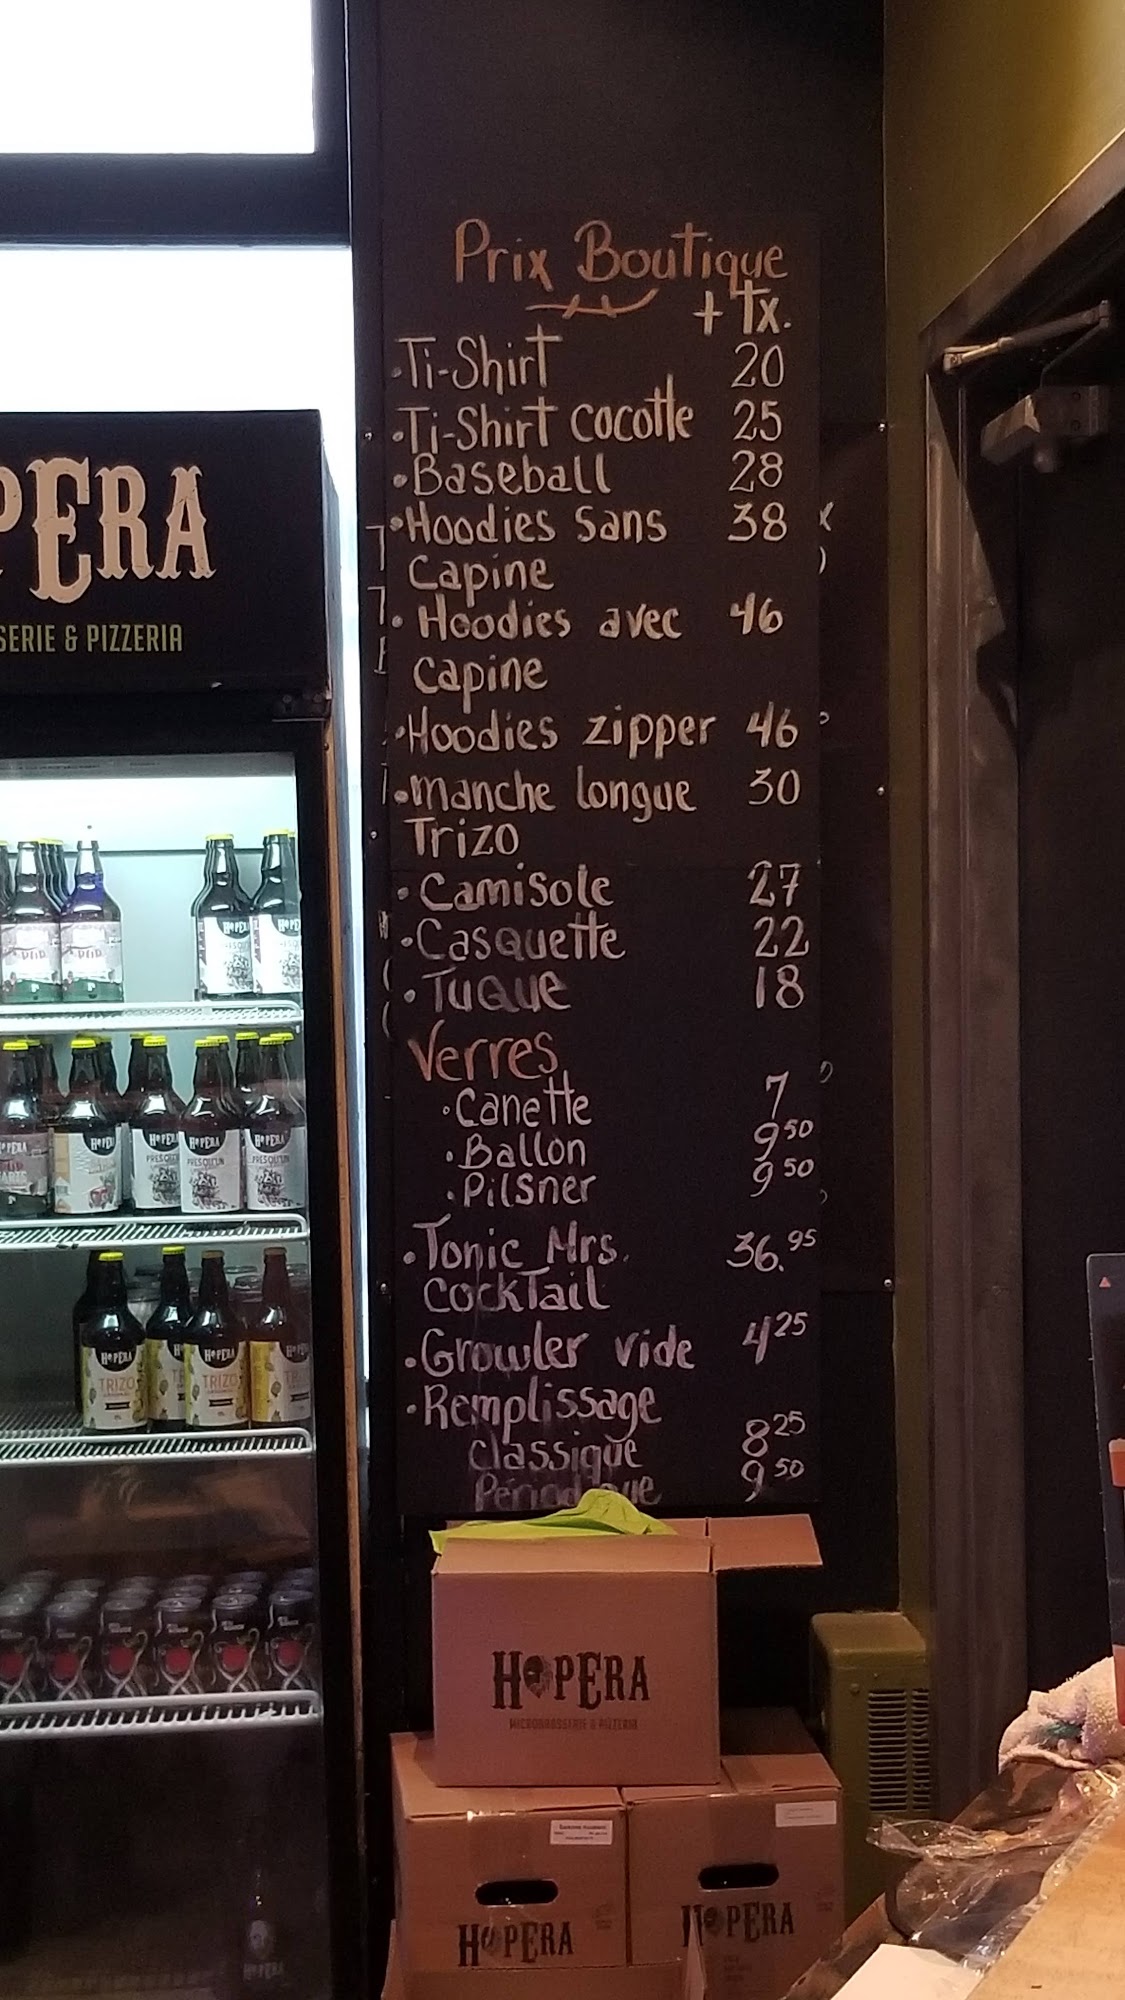 Prix Boutique
+ Tx.
• Ti-Shirt 20
• Ti-Shirt cocotte 25
• Baseball 28
• Hoodies Sans 38
Capine
• Hoodies avec 46
Capine
• Hoodies zipper 46
• Manche longue 30
Trizo
• Camisole 27
• Casquette 22
• Tuque 18
Verres
• Canette 7
• Ballon 9 50
• Pilsner 9 50
• Tonic Mrs. 36.95
Cocktail
• Growler vide 4 25
• Remplissage
Classique 8 25
Périodique 9 50
PERA
SERIE & PIZZERIA
HOPERA
HOPERA
HOPERA
PRESQU'UN
HOPERA
PRESQU'UN
HOPERA
HOPERA
TRIZO
HOPERA
TRIZO
HOPERA
MICROBRASSERIE & PIZZERIA
HOPERA
HOPERA